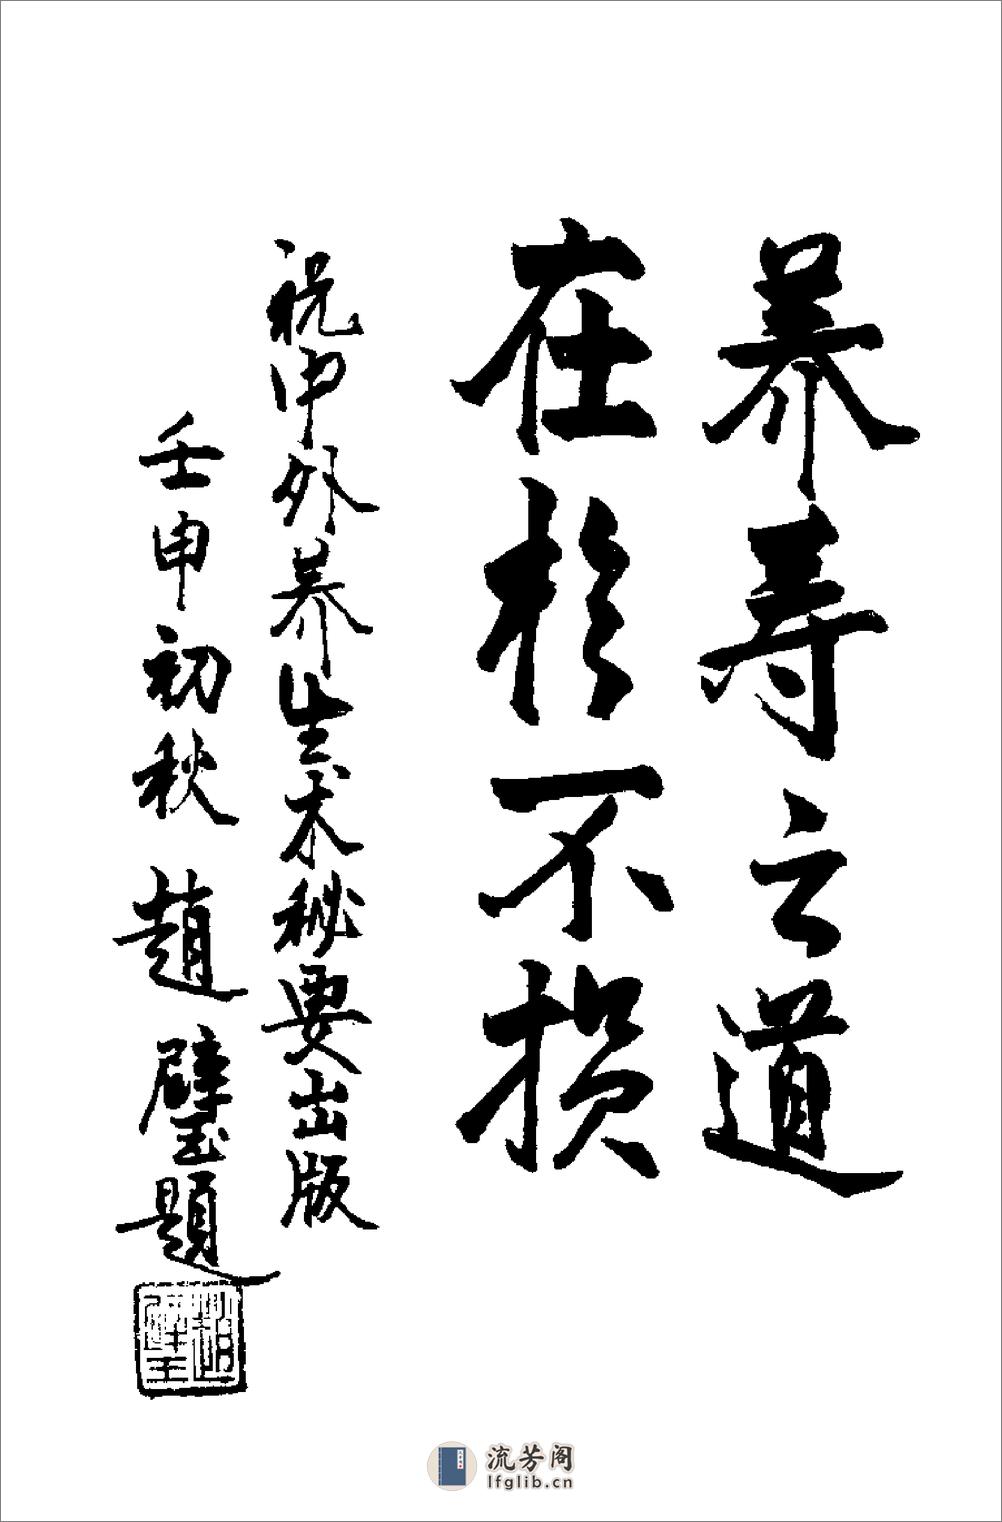 养寿之道
在於不损
祝中外养生术秘要出版
壬申初秋 趙璧题
趙璧
流芳阁
lfglib.cn